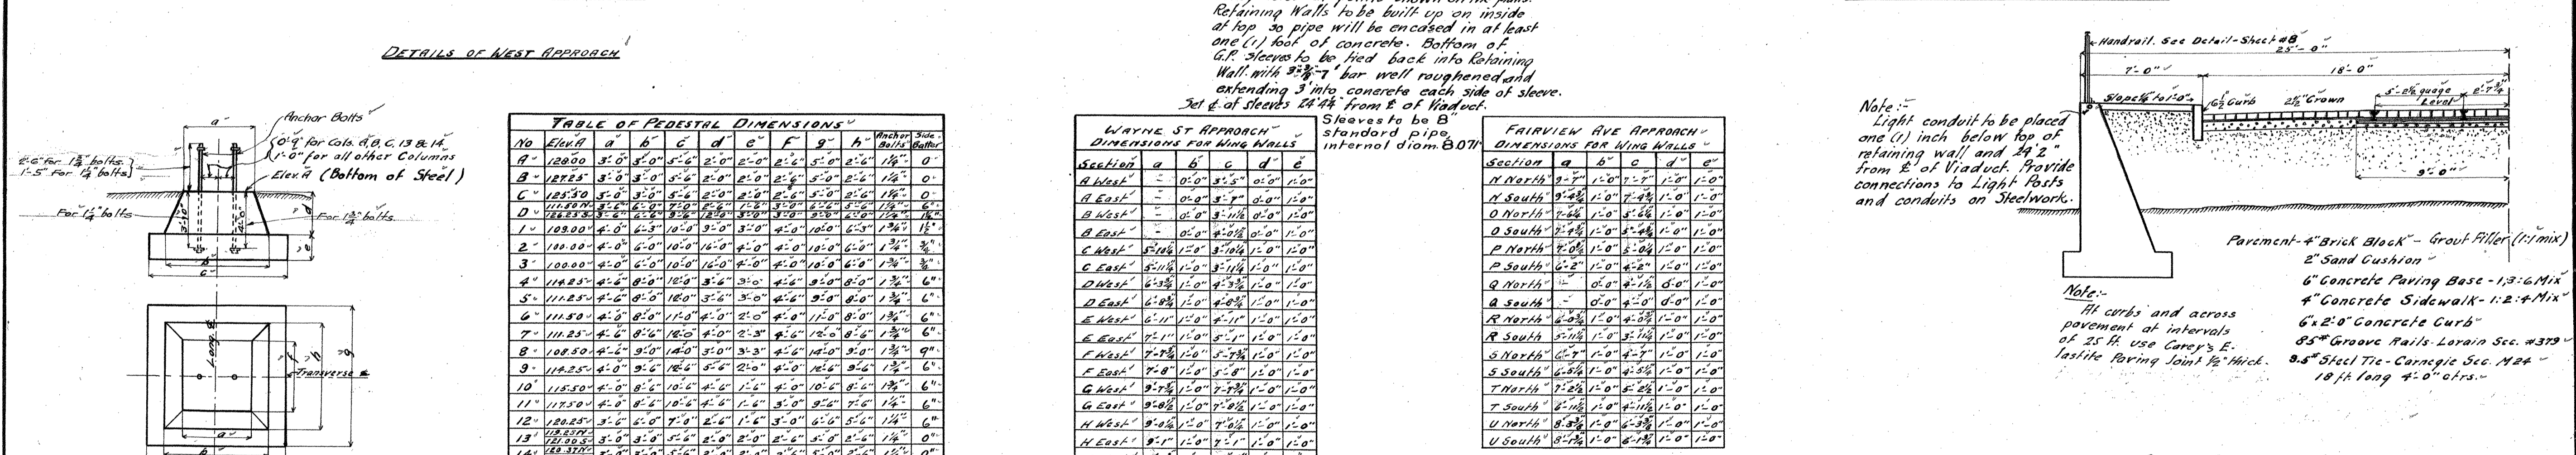 DETAILS OF WEST APPROACH
Anchor Bolts
0'-9" for Cols. A, B, C, 13 & 14
1'-0" for all other Columns
Elev. A (Bottom of Steel)
1'-5" For 1¼" bolts
For 1¼" bolts
For 1¾" bolts
Transverse
TABLE OF PEDESTAL DIMENSIONS
No Elev. A a b c d e f g h Anchor Bolts Side Batter
A 128.00 3'-0" 3'-0" 5'-6" 2'-0" 2'-0" 2'-6" 5'-0" 2'-6" 1¼" 0
B 127.25 3'-0" 3'-0" 5'-6" 2'-0" 2'-0" 2'-6" 5'-0" 2'-6" 1¼" 0
C 125.50 3'-0" 3'-0" 5'-6" 2'-0" 2'-0" 2'-6" 5'-0" 2'-6" 1¼" 0
D
1 109.00 4'-0" 6'-3" 10'-0" 9'-0" 3'-0" 4'-0" 10'-0" 6'-3" 1¾"
2 100.00 4'-0" 6'-0" 10'-0" 16'-0" 4'-0" 4'-0" 10'-0" 6'-0" 1¾" ¾"
3 100.00 4'-0" 6'-0" 10'-0" 16'-0" 4'-0" 4'-0" 10'-0" 6'-0" 1¾" ¾"
4 114.25 4'-6" 8'-0" 12'-0" 3'-6" 3'-0" 4'-6" 9'-0" 8'-0" 1¾" 6"
5 111.25 4'-6" 8'-0" 12'-0" 3'-6" 3'-0" 4'-6" 9'-0" 8'-0" 1¾" 6"
6 111.50 4'-0" 8'-0" 11'-0" 4'-0" 2'-0" 4'-0" 11'-0" 8'-0" 1¾" 6"
7 111.25 4'-6" 8'-6" 12'-0" 4'-0" 2'-3" 4'-6" 12'-0" 8'-6" 1¾" 6"
8 108.50 4'-6" 9'-0" 14'-0" 3'-0" 3'-3" 4'-6" 14'-0" 9'-0" 1¾" 9"
9 114.25 4'-0" 9'-6" 12'-6" 5'-6" 2'-0" 4'-0" 12'-6" 9'-6" 1¾" 6"
10 115.50 4'-0" 8'-6" 10'-6" 4'-6" 1'-6" 4'-0" 10'-6" 8'-6" 1¾" 6"
11 117.50 4'-0" 8'-6" 10'-6" 4'-6" 1'-6" 3'-0" 9'-6" 7'-6" 1¼" 6"
12 120.25 3'-6" 6'-0" 7'-0" 2'-6" 1'-6" 3'-0" 6'-6" 5'-6" 1¼" 6"
13 3'-0" 3'-0" 5'-6" 2'-0" 2'-0" 2'-6" 5'-0" 2'-6" 1¼" 0"
Retaining Walls to be built up on inside
at top so pipe will be encased in at least
one (1) foot of concrete. Bottom of
G.P. Sleeves to be tied back into Retaining
Wall with bar well roughened and
extending 3' into concrete each side of sleeve.
Set ₵ of sleeves from ₵ of Viaduct.
Sleeves to be 8"
standard pipe
internal diam. 8.071"
WAYNE ST APPROACH
DIMENSIONS FOR WING WALLS
Section a b c d e
A West - 0'-0" 3'-5" 0'-0" 1'-0"
A East - 0'-0" 3'-7" 0'-0" 1'-0"
B West - 0'-0" 3'-11½ 0'-0" 1'-0"
B East - 0'-0" 4'-0½ 0'-0" 1'-0"
C West 5'-10¼ 1'-0" 3'-10¼ 1'-0" 1'-0"
C East 5'-11¼ 1'-0" 3'-11¼ 1'-0" 1'-0"
D West 6'-3¾ 1'-0" 4'-3¾ 1'-0" 1'-0"
D East 6'-8¾ 1'-0" 4'-8¾ 1'-0" 1'-0"
E West 6'-11" 1'-0" 4'-11" 1'-0" 1'-0"
E East 7'-1" 1'-0" 5'-1" 1'-0" 1'-0"
F West 7'-7¾ 1'-0" 5'-7¾ 1'-0" 1'-0"
F East 7'-8" 1'-0" 5'-8" 1'-0" 1'-0"
G West 9'-7¾ 1'-0" 7'-7¾ 1'-0" 1'-0"
G East 9'-8½ 1'-0" 7'-8½ 1'-0" 1'-0"
H West 9'-0¼ 1'-0" 7'-0¼ 1'-0" 1'-0"
H East 9'-1" 1'-0" 7'-1" 1'-0" 1'-0"
FAIRVIEW AVE APPROACH
DIMENSIONS FOR WING WALLS
Section a b c d e
N North 9'-7" 1'-0" 7'-7" 1'-0" 1'-0"
N South 9'-4¾ 1'-0" 7'-4¾ 1'-0" 1'-0"
O North 7'-6¼ 1'-0" 5'-6¼ 1'-0" 1'-0"
O South 7'-4¾ 1'-0" 5'-4¾ 1'-0" 1'-0"
P North 7'-0¼ 1'-0" 5'-0¼ 1'-0" 1'-0"
P South 6'-2" 1'-0" 4'-2" 1'-0" 1'-0"
Q North - 0'-0" 4'-1½ 0'-0" 1'-0"
Q South - 0'-0" 4'-0" 0'-0" 1'-0"
R North 6'-0¾ 1'-0" 4'-0¾ 1'-0" 1'-0"
R South 5'-11½ 1'-0" 3'-11½ 1'-0" 1'-0"
S North 6'-7" 1'-0" 4'-7" 1'-0" 1'-0"
S South 6'-5¼ 1'-0" 4'-5¼ 1'-0" 1'-0"
T North 7'-2½ 1'-0" 5'-2½ 1'-0" 1'-0"
T South 6'-11½ 1'-0" 4'-11½ 1'-0" 1'-0"
U North 8'-3¾ 1'-0" 6'-3¾ 1'-0" 1'-0"
U South 8'-1¾ 1'-0" 6'-1¾ 1'-0" 1'-0"
Handrail. See Detail-Sheet #8
25'-0"
7'-0" 18'-0"
5'-2½ guage 2'-7¾"
Level
Curb 2½" Crown
9'-0"
Note:-
Light conduit to be placed
one (1) inch below top of
retaining wall and 24'2"
from ₵ of Viaduct. Provide
connections to Light Posts
and conduits on Steelwork.
Pavement-4" Brick Block - Grout Filler (1:1 mix)
2" Sand Cushion
6" Concrete Paving Base - 1:3:6 Mix
4" Concrete Sidewalk - 1:2:4 Mix
6"x2'-0" Concrete Curb
85# Groove Rails-Lorain Sec. #379
8.5# Steel Tie-Carnegie Sec. M24
18 ft. long 4'-0" ctrs.
Note:-
At curbs and across
pavement at intervals
of 25 ft. use Carey's E-
lastite Paving Joint ½" thick.